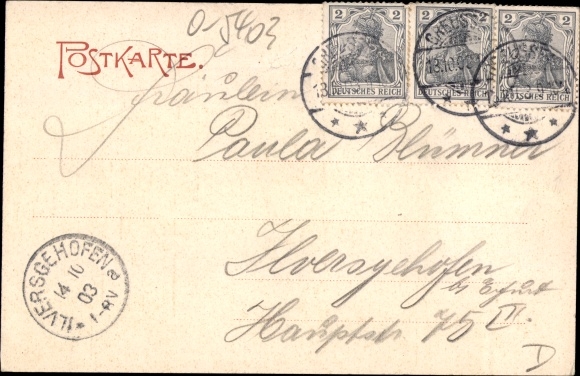 0-5403
2 2 2
DEUTSCHES REICH DEUTSCHES REICH DEUTSCHES REICH
POSTKARTE.
Fräulein
Paula Blümner
Ilversgehofen
b. Erfurt
Hauptstr. 75 II.
ILVERSGEHOFEN a
14 10
03
1-
D